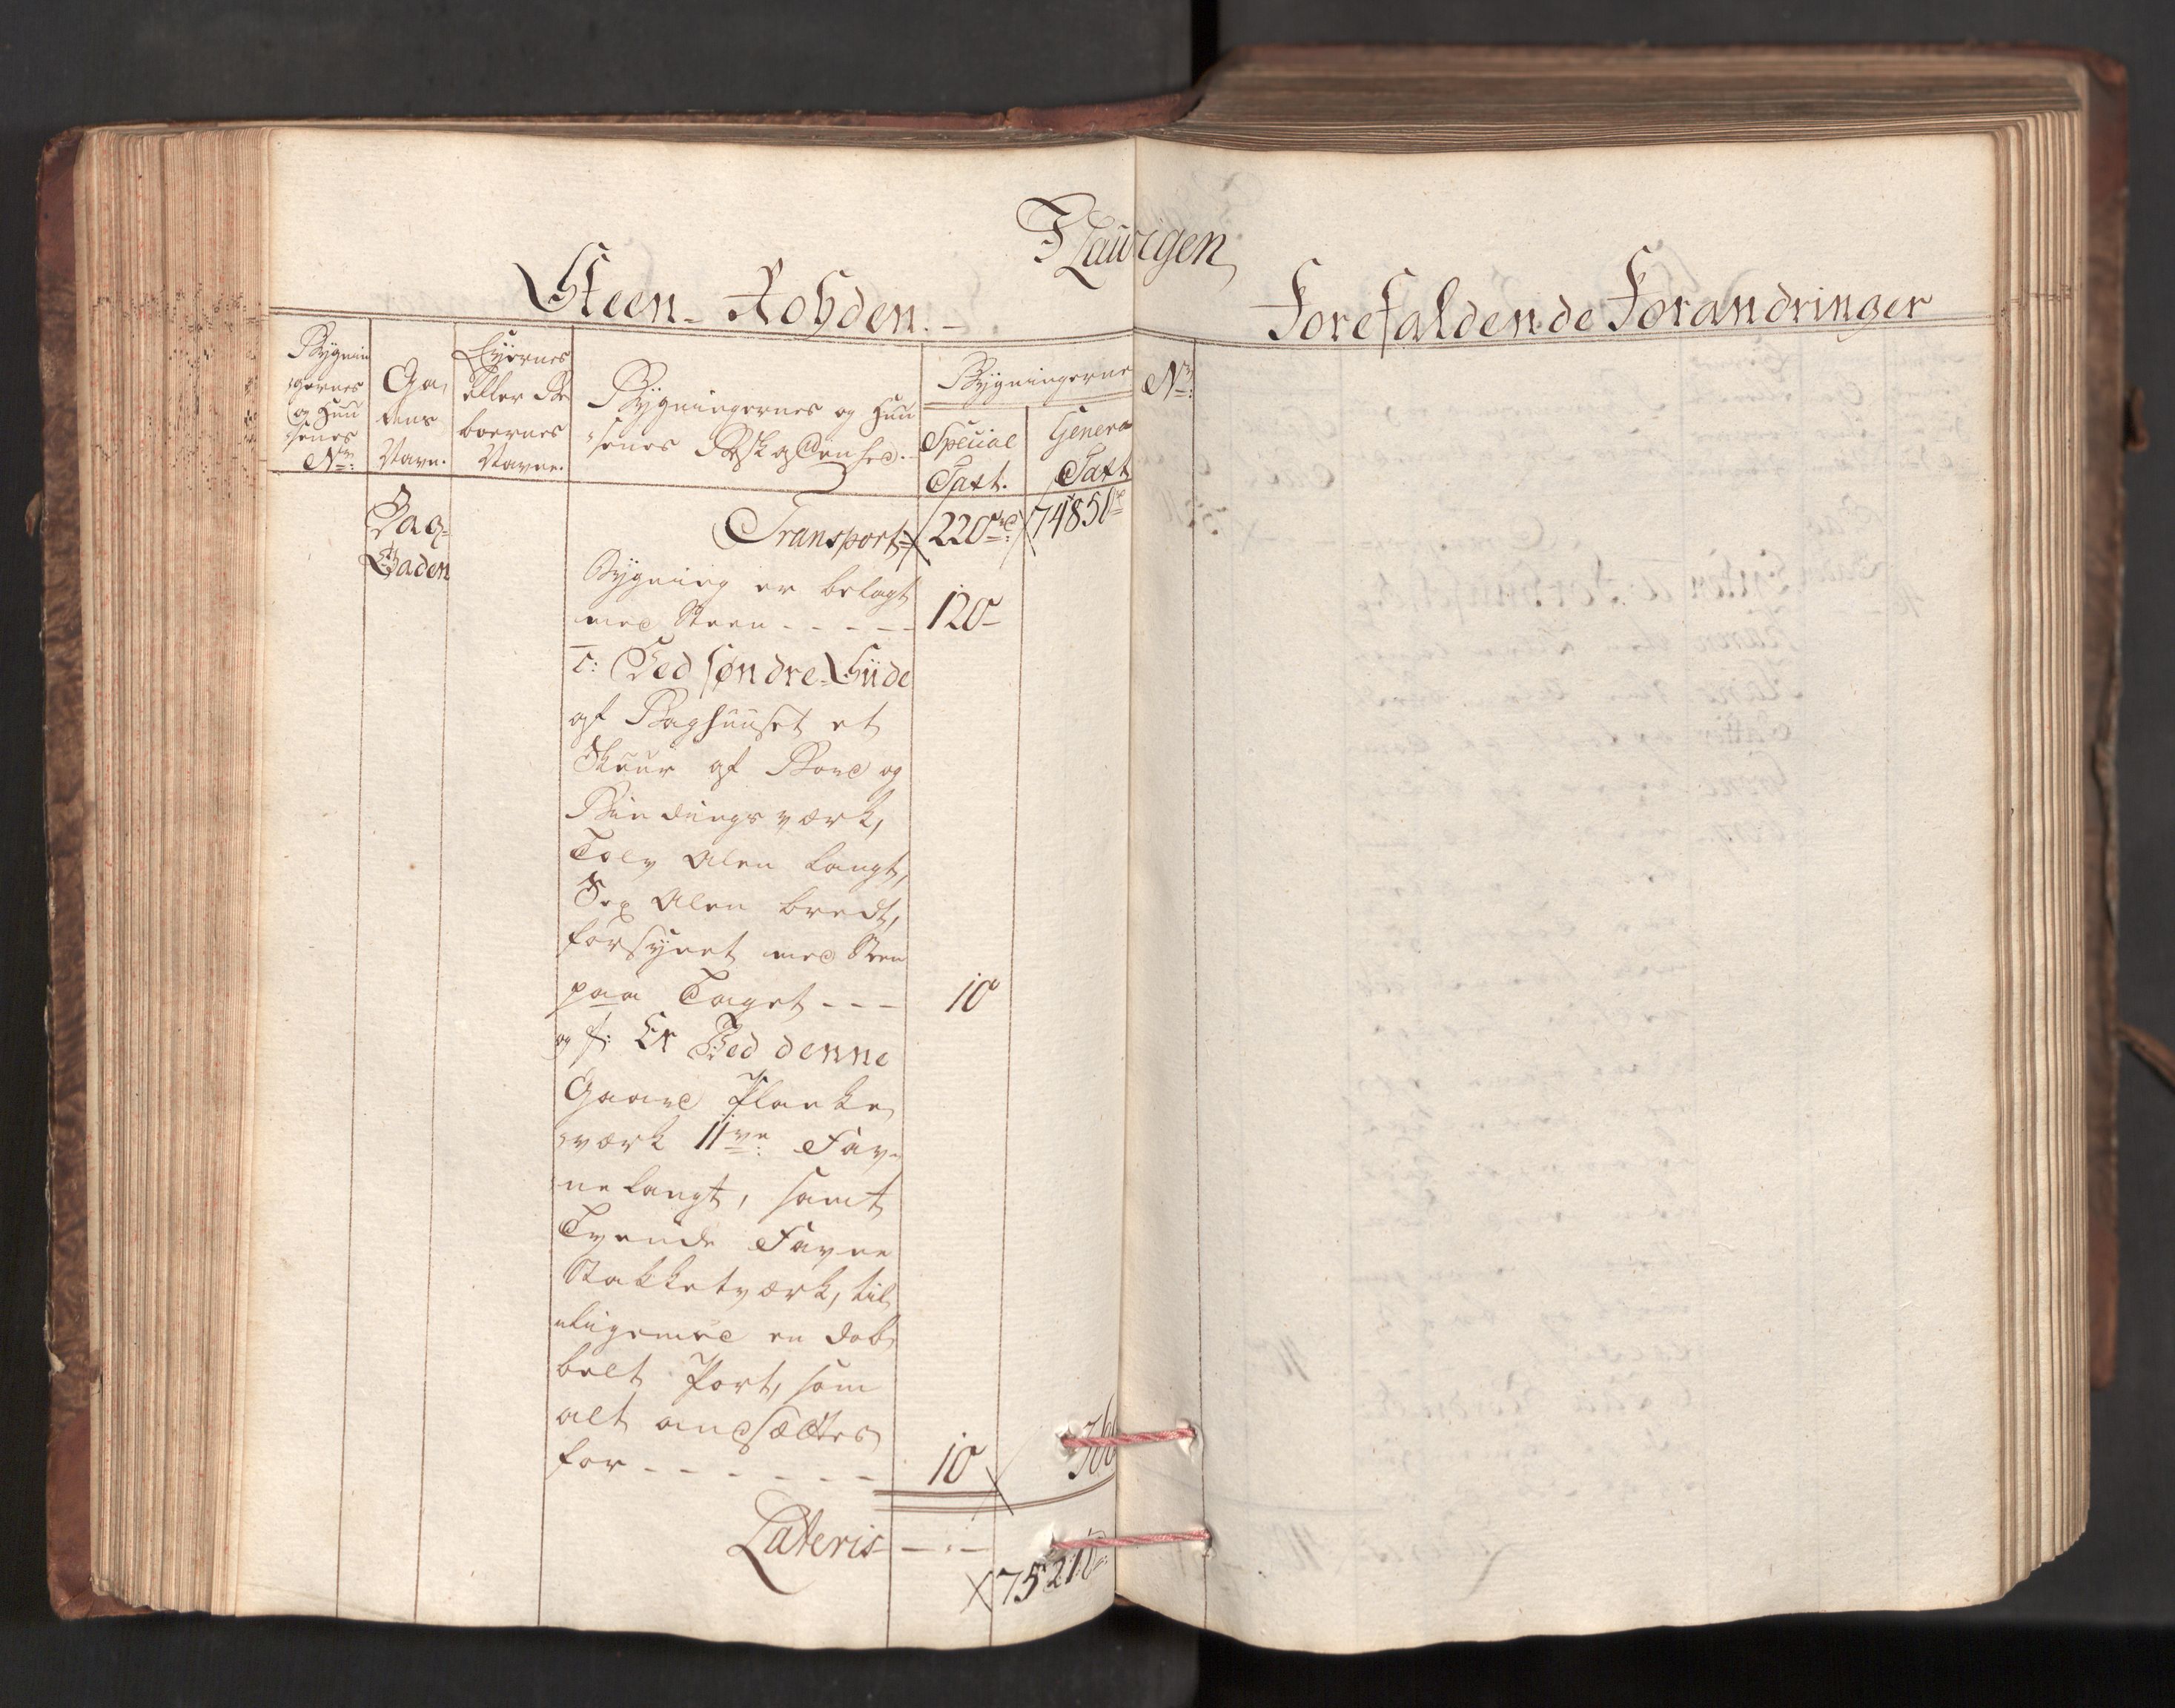 I Laurvigen
Steen-Roheden.
Forefaldende Forandringer
Bygnin
gernes
og Huu
senes
No:
Ga,
dens
Navn.
Eyernes
eller Be
boernes
Navne.
Bygningernes og Huu
senes Beskaffenhed.
Bygningerne
Special
Taxt.
Genera
Taxt
No:
Bag-
Gaden
Transport 220 rd: 74850
Bygning er belagt
med Steen - - - - - 120-
e: Ved søndre Siide
af Baghuuset et
Skuur af Bord og
Bindingsværk,
Tolv Alen langt,
Sex Alen bredt,
forsynet med Steen
paa Taget - - - 10
og f: Er Ved denne
Gaard Planke
værk 11ve: Fav-
ne langt, samt
Tvende Favne
Stakketværk, til
ligemed en dob
belt Port, som
alt andsættes
for - - - - - - 10 360
Lateris - . - 75210